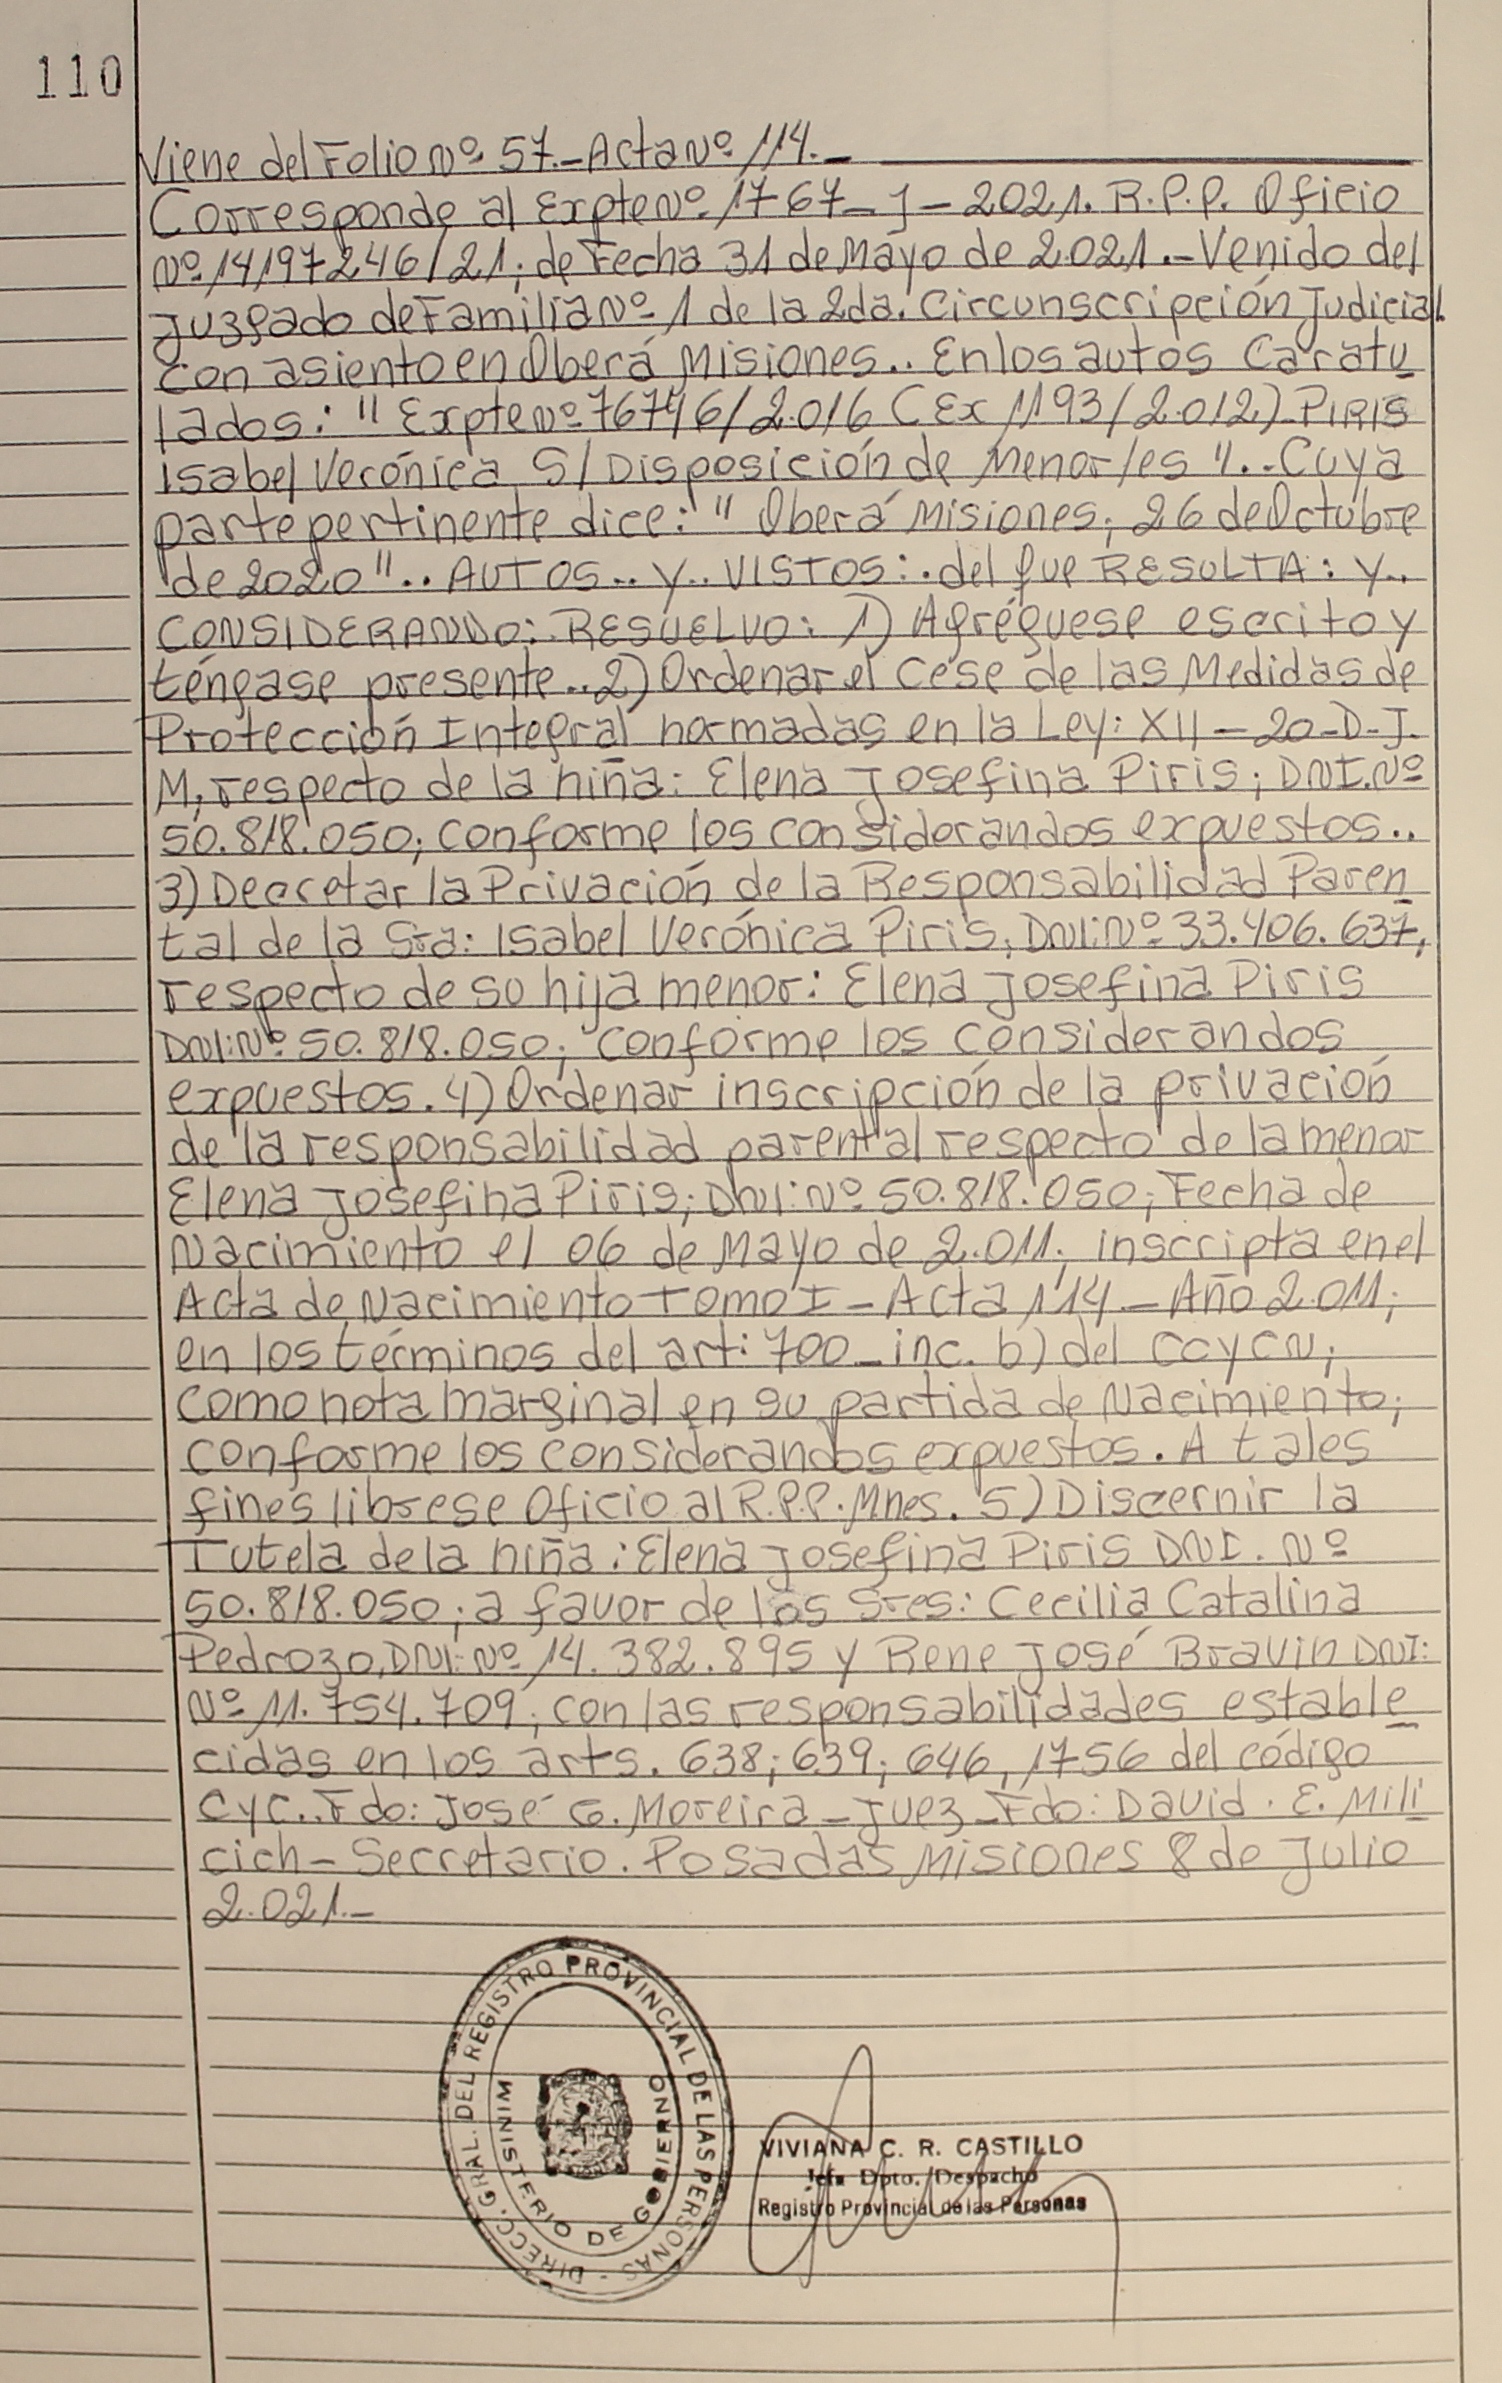 110
Viene del Folio Nº 57.- Acta Nº 114.-
Corresponde al Expte Nº 1767-J-2021. R.P.P. Oficio
Nº 14197246/21; de Fecha 31 de Mayo de 2.021.- Venido del
Juzgado de Familia Nº 1 de la 2da. Circunscripción Judicial
con asiento en Oberá Misiones.. En los autos Caratu
lados: " Expte Nº 76746/2.016 (Ex 1193/2.012) PIRIS
Isabel Verónica S/Disposición de Menor/es ".. Cuya
parte pertinente dice: " Oberá Misiones; 26 de Octubre
de 2020 ".. AUTOS.. Y.. VISTOS:. del que RESULTA: Y..
CONSIDERANDO: RESUELVO: 1) Agréguese escrito y
téngase presente..2) Ordenar el cese de las Medidas de
Protección Integral normadas en la Ley: XII - 20-D-J.
M, respecto de la niña: Elena Josefina Piris; DNI.Nº
50.818.050; conforme los considerandos expuestos..
3) Decretar la Privación de la Responsabilidad Paren
tal de la Sra: Isabel Verónica Piris; DNI:Nº 33.406.637,
respecto de su hija menor: Elena Josefina Piris
DNI:Nº 50.818.050; conforme los considerandos
expuestos. 4) Ordenar inscripción de la privación
de la responsabilidad parental respecto de la menor
Elena Josefina Piris; DNI:Nº 50.818.050; Fecha de
Nacimiento el 06 de Mayo de 2.011; inscripta en el
Acta de Nacimiento Tomo I - Acta 114 - Año 2.011;
en los términos del art: 700 - inc. b) del CCyCN;
como nota marginal en su partida de Nacimiento;
conforme los considerandos expuestos. A tales
fines librese Oficio al R.P.P. Mnes. 5) Discernir la
Tutela de la niña: Elena Josefina Piris DNI. Nº
50.818.050; a favor de los Sres: Cecilia Catalina
Pedrozo, DNI: Nº 14.382.895 y Rene José Bravin DNI:
Nº 11.754.709; con las responsabilidades estable
cidas en los arts. 638; 639; 646, 1756 del código
CyC.. Fdo: José G. Moreira - Juez - Fdo: David. E. Mili
cich - Secretario. Posadas Misiones 8 de Julio
2.021.-
DIRECC. GRAL. DEL REGISTRO PROVINCIAL DE LAS PERSONAS -
MINISTERIO DE GOBIERNO
VIVIANA C. R. CASTILLO
Jefa Dpto. Despacho
Registro Provincial de las Personas